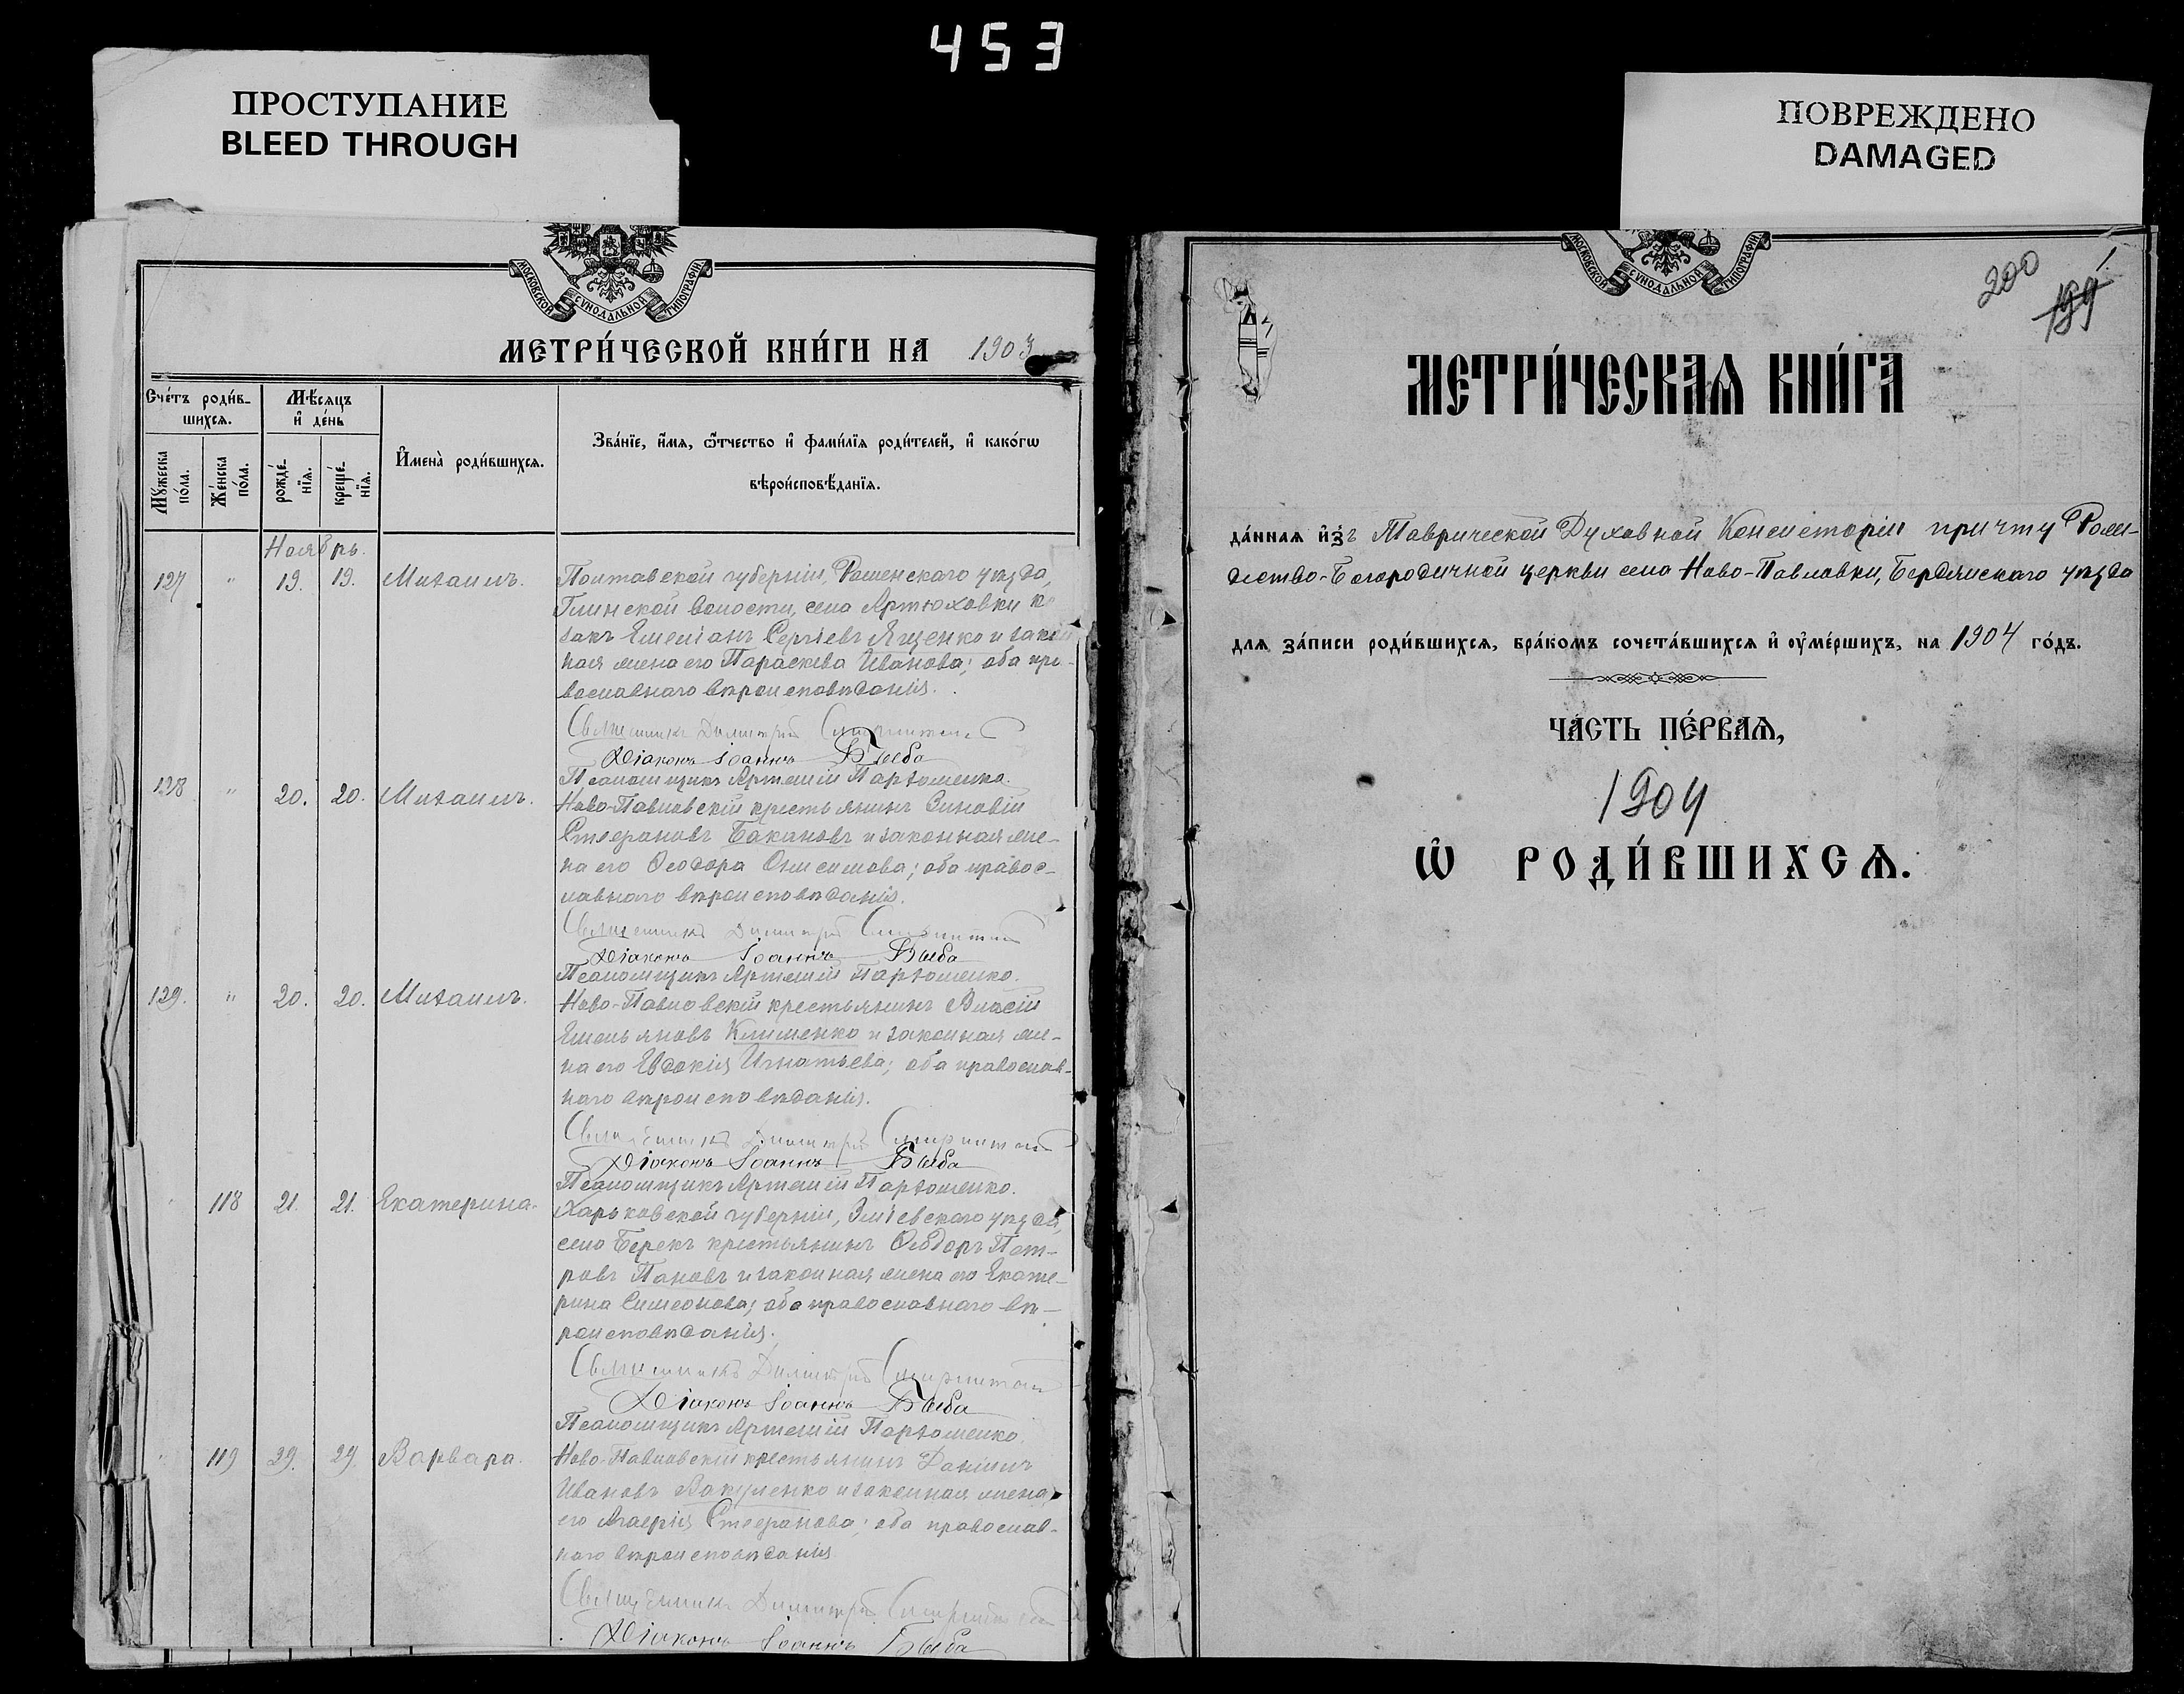 453
ПРОСТУПАНИЕ
BLEED THROUGH
ПОВРЕЖДЕНО
DAMAGED
МОСКОВСКОЙ СѴНОДАЛЬНОЙ ТИПОГРАФІИ
МЕТРИ́ЧЕСКОЙ КНИ́ГИ НА 1903
Сче́тъ роди́в-
шихсѧ.
Мѣ́сѧцъ
и҆ де́нь
Му́жеска
по́ла.
Же́нска
по́ла.
рожде́-
нїѧ.
креще́-
нїѧ.
И҆мена̀ роди́вшихсѧ.
Зва́нїе, и҆́мѧ, ѻ҆́тчество и҆ фами́лїѧ роди́телей, и҆ како́гѡ
вѣроисповѣ́данїѧ.
Ноябрь.
127 " 19. 19. Михаилъ.
Полтавской губерніи, Роменскаго уѣзда,
Глинской волости, села Артюховки ко
закъ Емеліанъ Сергіевъ Ященко и закон
ная жена его Параскева Иванова; оба пра-
вославнаго вѣроисповѣданія.
Священникъ Димитрій
Діаконъ Іоаннъ Быба
Псаломщикъ Артемій Пархоменко.
128 " 20. 20. Михаилъ.
Ново-Павловскій крестьянинъ Зиновій
Стефановъ Бакановъ и законная же-
на его Ѳеодора Онисимова; оба правос-
лавнаго вѣроисповѣданія.
Священникъ Димитрій
Діаконъ Іоаннъ Быба
Псаломщикъ Артемій Пархоменко.
129. " 20. 20. Михаилъ.
Ново-Павловскій крестьянинъ Власій
Емельяновъ Клименко и законная же-
на его Евдокія Игнатьева; оба православ-
наго вѣроисповѣданія.
Священникъ Димитрій
Діаконъ Іоаннъ Быба
Псаломщикъ Артемій Пархоменко.
118 21. 21. Екатерина.
Харьковской губерніи, Зміевскаго уѣзда,
села Берекъ крестьянинъ Ѳеодоръ Пет-
ровъ Пановъ и законная жена его Екате-
рина Симеонова; оба православнаго вѣ-
роисповѣданія.
Священникъ Димитрій
Діаконъ Іоаннъ Быба
Псаломщикъ Артемій Пархоменко.
119 29. 29. Варвара.
Ново-Павловскій крестьянинъ Даніилъ
Ивановъ Вакуленко и законная жена
его Агафія Стефанова; оба православ-
наго вѣроисповѣданія
Священникъ Димитрій
Діаконъ Іоаннъ Быба
МОСКОВСКОЙ СѴНОДАЛЬНОЙ ТИПОГРАФІИ
1.
200
199
МЕТРИ́ЧЕСКАѦ КНИ́ГА
да́нная и҆́зъ Таврической Духовной Консисторіи причту Рож-
дество-Богородичной церкви села Ново-Павловки, Бердянскаго уѣзда
для за́писи роди́вшихсѧ, бра́комъ сочета́вшихсѧ и҆ ѹ҆ме́ршихъ, на 1904 го́дъ.
ЧА́СТЬ ПЕ́РВАѦ,
1904
Ѡ҆ РОДИ́ВШИХСѦ.